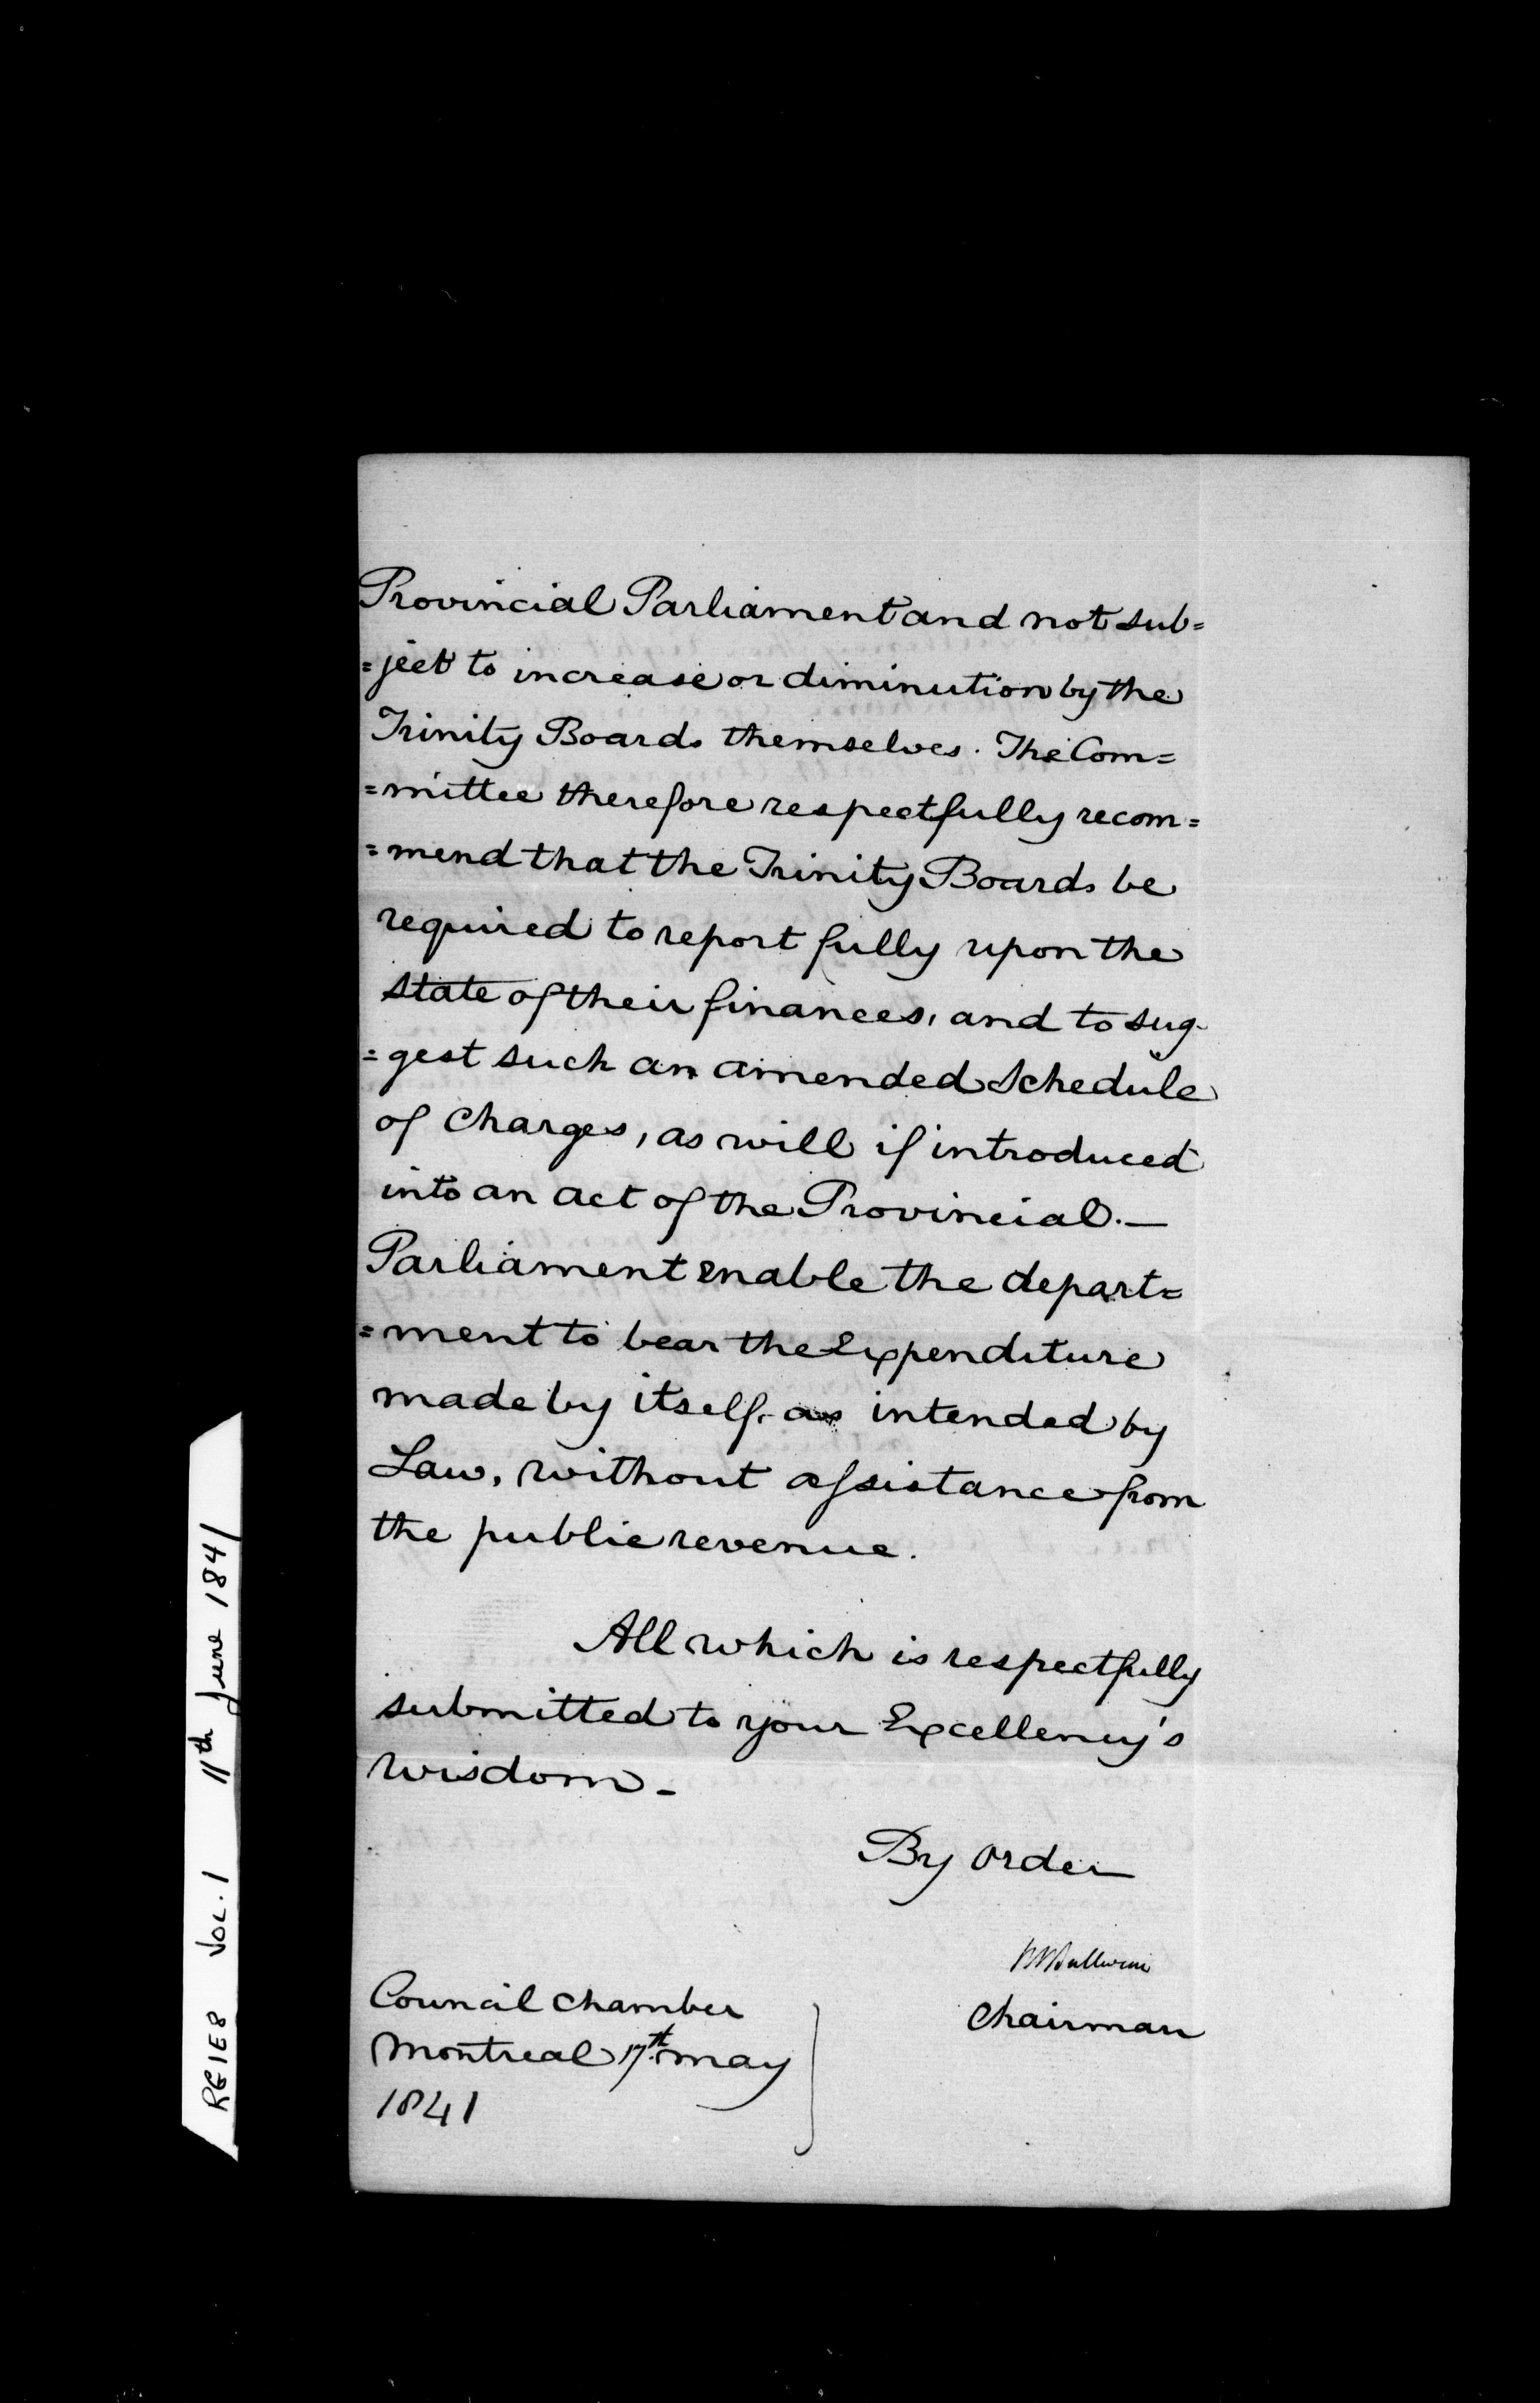 Provincial Parliament and not sub=
=ject to increase or diminution by the
Trinity Boards themselves. The Com=
=mittee therefore respectfully recom=
=mend that the Trinity Boards be
required to report fully upon the
state of their finances, and to sug-
=gest such an amended Schedule
of Charges, as will if introduced
into an act of the Provincial.—
Parliament enable the depart=
=ment to bear the Expenditure
made by itself, as intended by
Law, without assistance from
the public revenue.
All which is respectfully
submitted to your Excellency's
wisdom -
By Order
Chairman
Council Chamber
Montreal 17th. May
1841
RG1E8 VOL. 1 11th June 1841